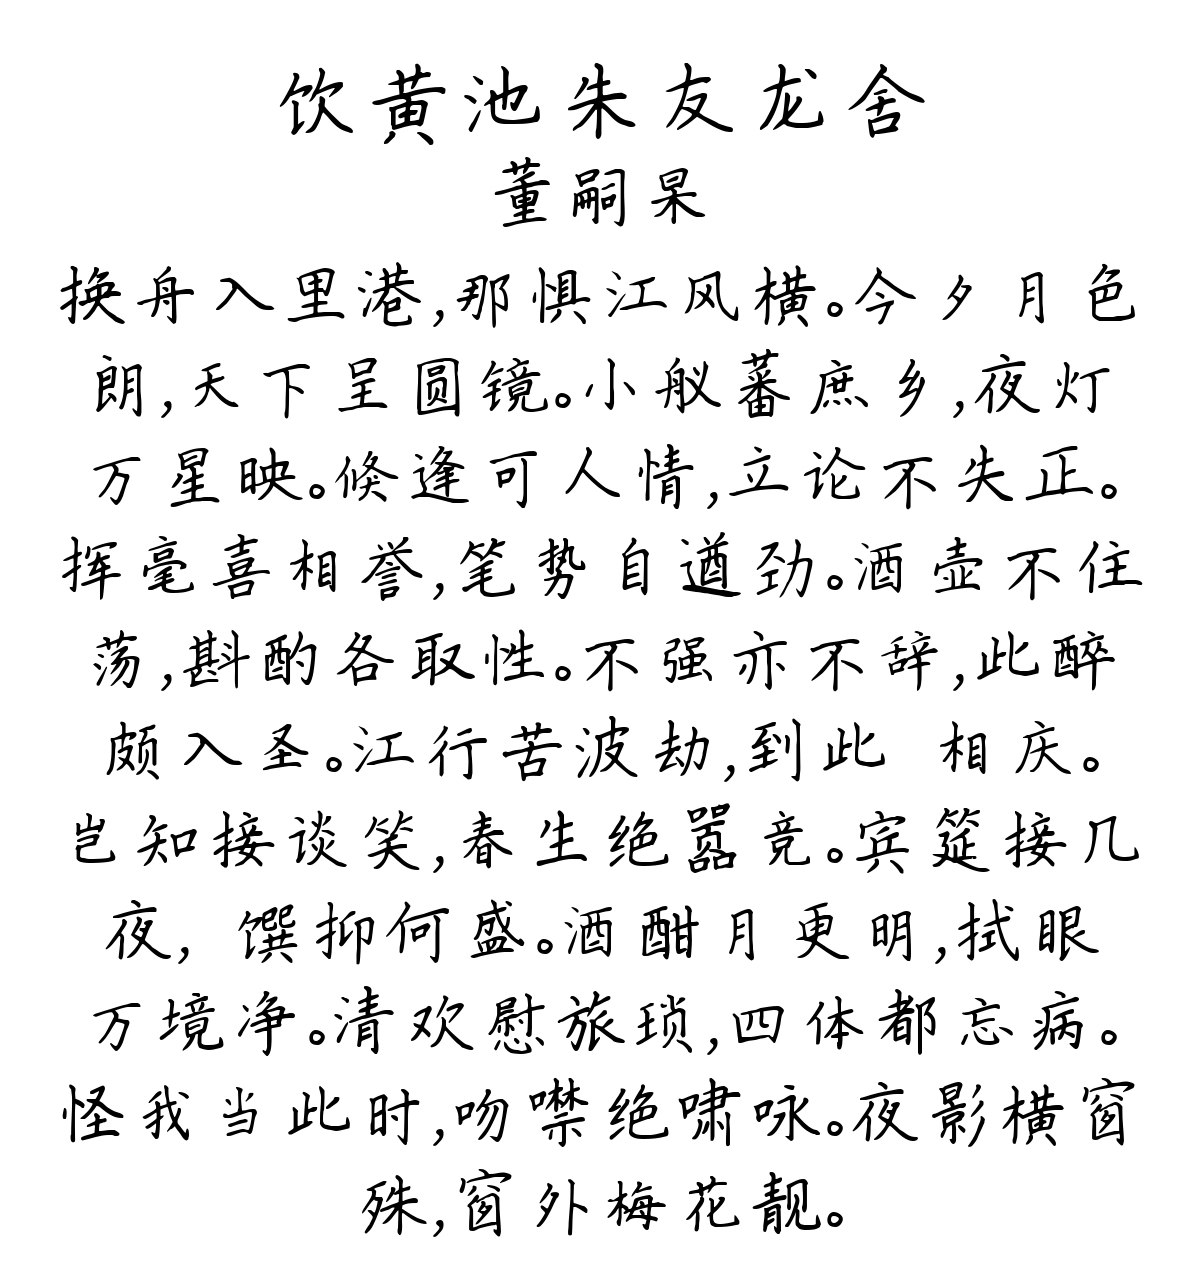 饮黄池朱友龙舍
董嗣杲
换舟入里港,那惧江风横。今夕月色
朗,天下呈圆镜。小舣蕃庶乡,夜灯
万星映。倏逢可人情,立论不失正。
挥毫喜相誉,笔势自遒劲。酒壶不住
荡,斟酌各取性。不强亦不辞,此醉
颇入圣。江行苦波劫,到此 相庆。
岂知接谈笑,春生绝嚣竞。宾筵接几
夜, 馔抑何盛。酒酣月更明,拭眼
万境净。清欢慰旅琐,四体都忘病。
怪我当此时,吻噤绝啸咏。夜影横窗
殊,窗外梅花靓。